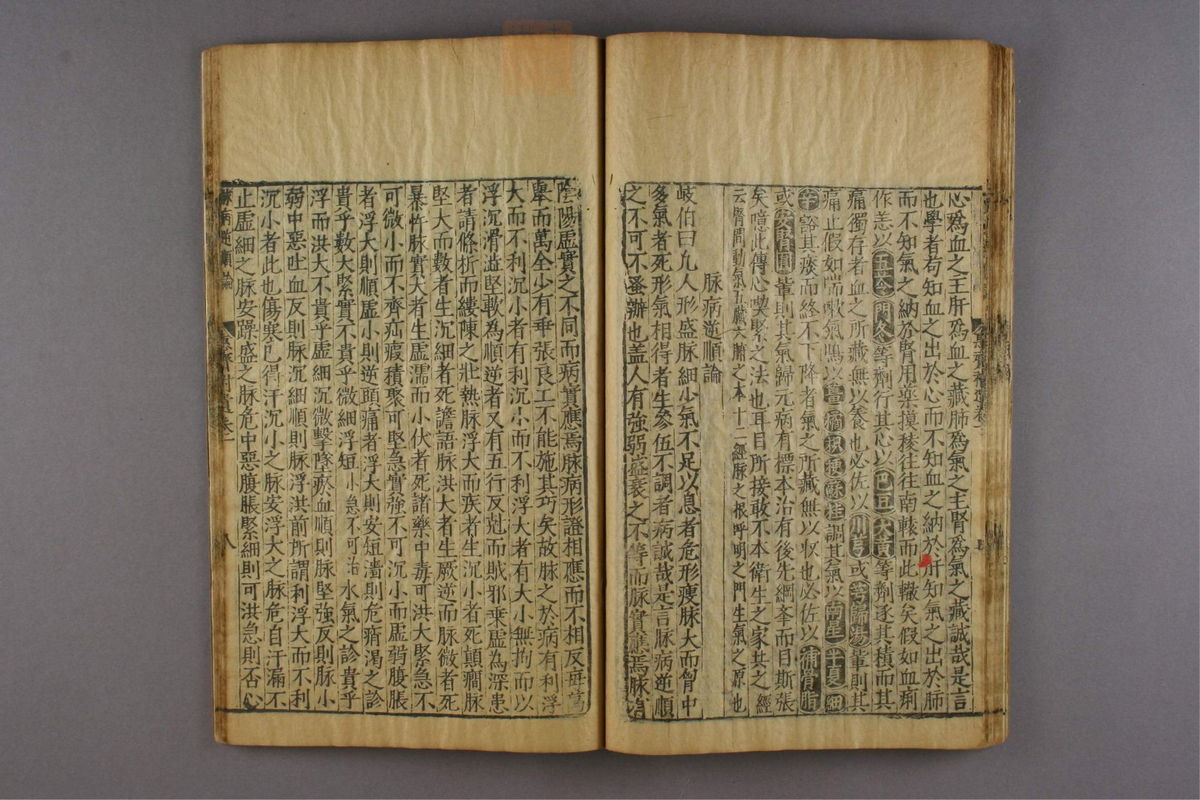 心爲血之主肝爲血之藏肺爲氣之主腎爲氣之藏誠哉是言
也學者苟知血之出於心而不知血之納於肝知氣之出於肺
而不知氣之納於腎用藥摸稜往往南轅而北轍矣假如血痢
作恙以五苓門冬等劑行其心以巴豆大黃等劑逐其積而其
痛獨存者血之所藏無以養也必佐以川芎或芎歸湯輩則其
痛止假如喘嗽氣鳴以橘枳梗蘇桂調其氣以南星半夏細
辛豁其痰而終不下降者氣之所藏無以收也必佐以補骨脂
或安腎圓輩則其氣歸元病有標本治有後先綱舉而目斯張
矣噫此傳心喫緊之法也耳目所接敢不本衛生之家共之經
云腎間動氣五臟六腑之本十二經脉之根呼吸之門生氣之原也
脉病逆順論
岐伯曰凡人形盛脉細少氣不足以息者危形瘦脉大而胷中
多氣者死形氣相得者生參伍不調者病誠哉是言脉病逆順
之不可不蚤辦也蓋人有強弱盛衰之不等而脉實應焉脉有
陰陽虛實之不同而病實應焉脉病形證相應而不相反
舉而萬全少有乖張良工不能施其巧矣故脉之於病有利浮
大而不利沉小者有利沉小而不利浮大者有大小無拘而以
浮沉滑澁堅軟爲順逆者又有五行反剋而賊邪乗虛爲深患
者請條折而縷陳之壯熱脉浮大而疾者生沉小者死顛癎脉
堅大而數者生沉細者死譫語脉洪大者生厥逆而脉微者死
暴忤脉實大者生虛濡而小伏者死諸藥中毒可洪大緊急不
可微小而不齊疝瘕積聚可堅急實強不可沉小而虛弱腹脹
者浮大則順虛小則逆頭痛者浮大則安短濇則危痟渴之診
貴乎數大堅實不貴乎微細浮短小急不可治水氣之診貴乎
浮而洪大不貴乎虛細沉微擊墜瘀血順則脉堅強反則脉小
弱中惡吐血反則脉沉細順則脉浮洪前所謂利浮大而不利
沉小者此也傷寒已得汗沉小之脉安浮大之脉危自汗漏不
止虛細之脉安躁盛之脉危中惡腹脹緊細則可洪急則否心
脉病逆順論
八